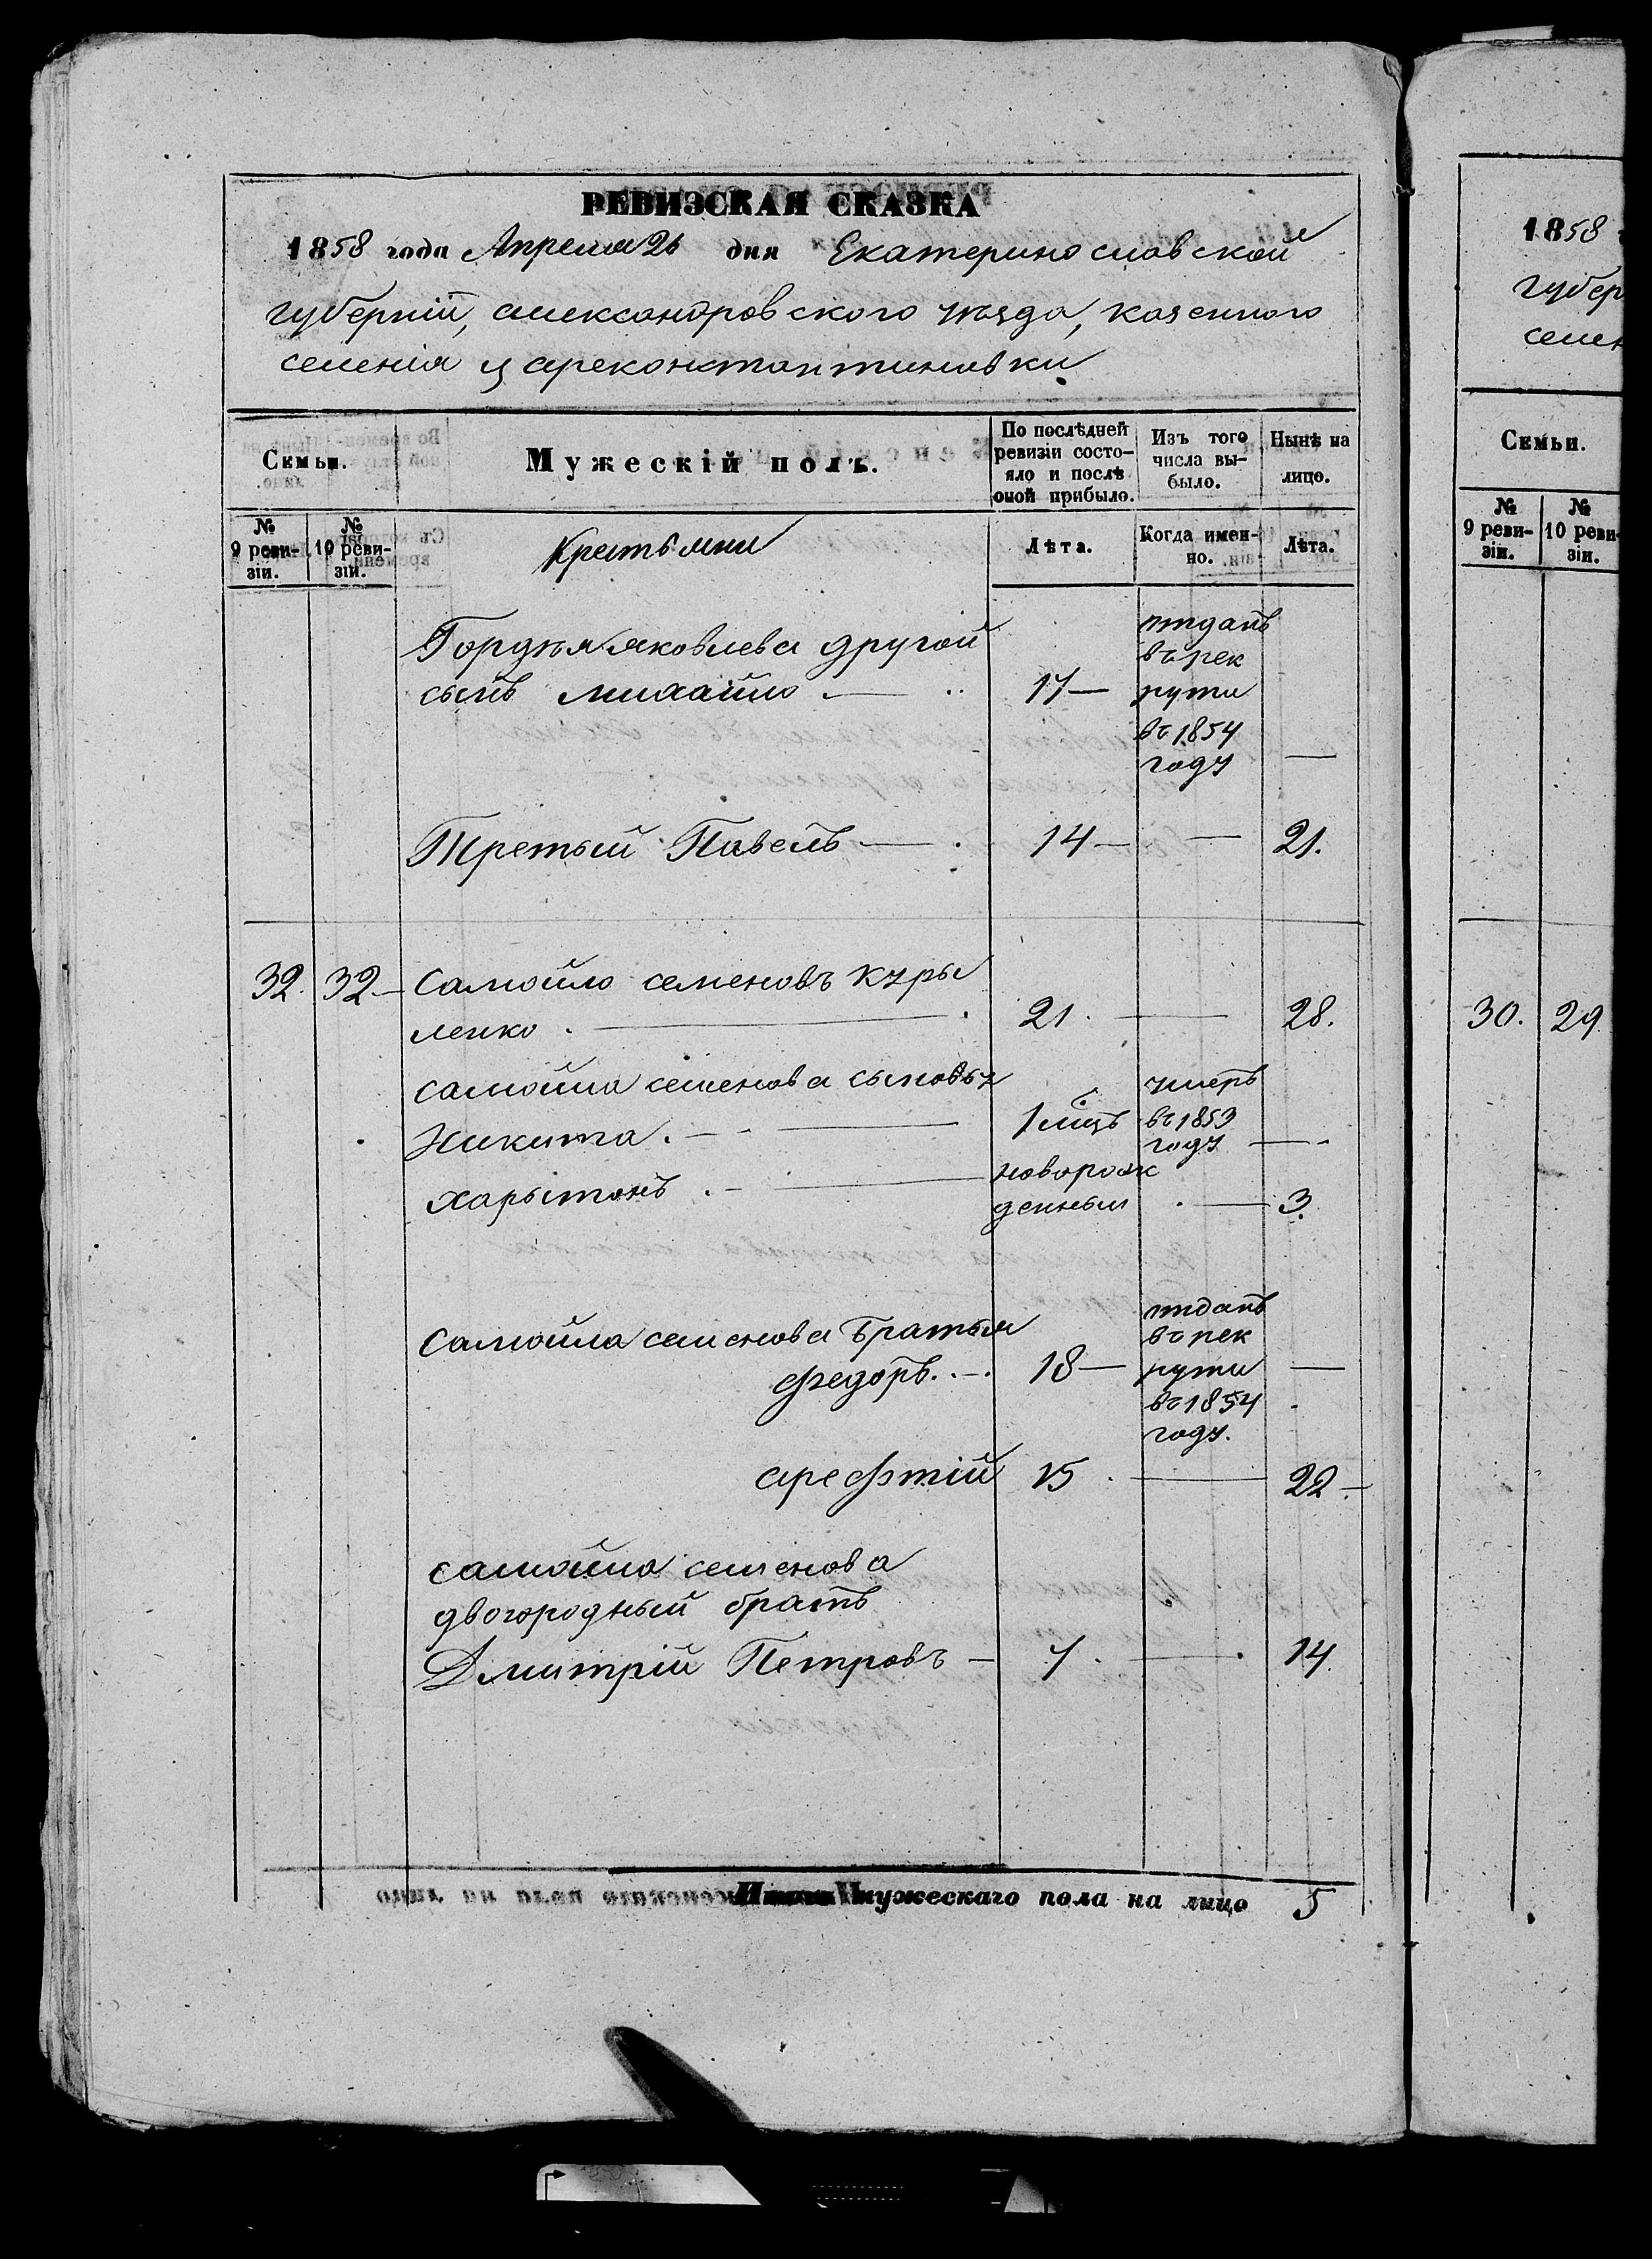 РЕВИЗСКАЯ СКАЗКА
1858 года Апреля 26 дня Екатеринославской
губерніи, александровского уѣзда, казенного
селенія цареконстантиновки
Семьи.
Мужескій полъ.
По послѣдней ревизіи состо-
яло и послѣ
оной прибыло.
Изъ того
числа вы-
было.
Нынѣ на
лицо.
№
9 реви-
зіи.
№
10 реви-
зіи.
Крестьяни
Лѣта.
Когда имен-
но.
Лѣта.
Гордѣя яковлева другой
сынъ михайло — 17— отданъ
въ рек
руты
въ 1854
году —
Третьий Павелъ — 14— — 21.
32. 32— Самойло семеновъ Куры
ленко . — 21. — 28.
самойла семенова сыновья
Никита . — 1 мцъ умеръ
въ 1853
году —
харытонъ . — новорож
денный — 3.
Самойла семенова Братья
федоръ. — 18— отданъ
въ рек
руты
въ 1854
году. —
арефтій 15. — 22—
самойла семенова
двоюродный братъ
Дмитрій Петровъ — 7. — 14.
Итого мужескаго пола на лицо 5
1858
губер
селен
Семьи.
№
9 реви-
зіи.
№
10 реви-
зіи.
30. 29.